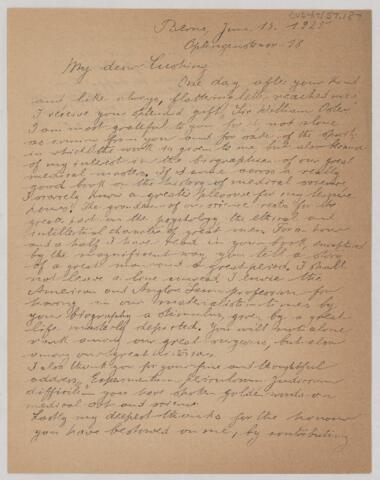 Berne, June 13. 1925
My dear Cushing
One day after your kind
and, like always, flattering letter, reached me
I receive your splendid gift, "Sir William Osler".
I am most grateful to you for it, not alone
as coming from you and for sake of the spirit
in which the work is given to me but also because
of my interest in the biographies of our great
medical masters. If I come across a really
good book on the history of medical science
I rarely know a greater pleasure for me to give
, the grandeur of our science rests for the
great part on the psychology, the ethical and
intellectual character of great men. For a hour
and a half I have read in your book, surprised
by the magnificent way you tell a story
of a great man and a great period. I shall
not leave a line unread. I the
American and Anglo Saxon profession for
having in our materialistic times by
your biography a stimulus, given by a great
life masterly depicted. You will not alone
rank among our great surgeons, but also
among our great
I also thank you for your fine and thoughtful
address, Experimentum periculosum Judicium
difficile — you have spoken golden words on
medical art and science.
Lastly my deepest thanks for the honour
you have bestowed on me, by contributing